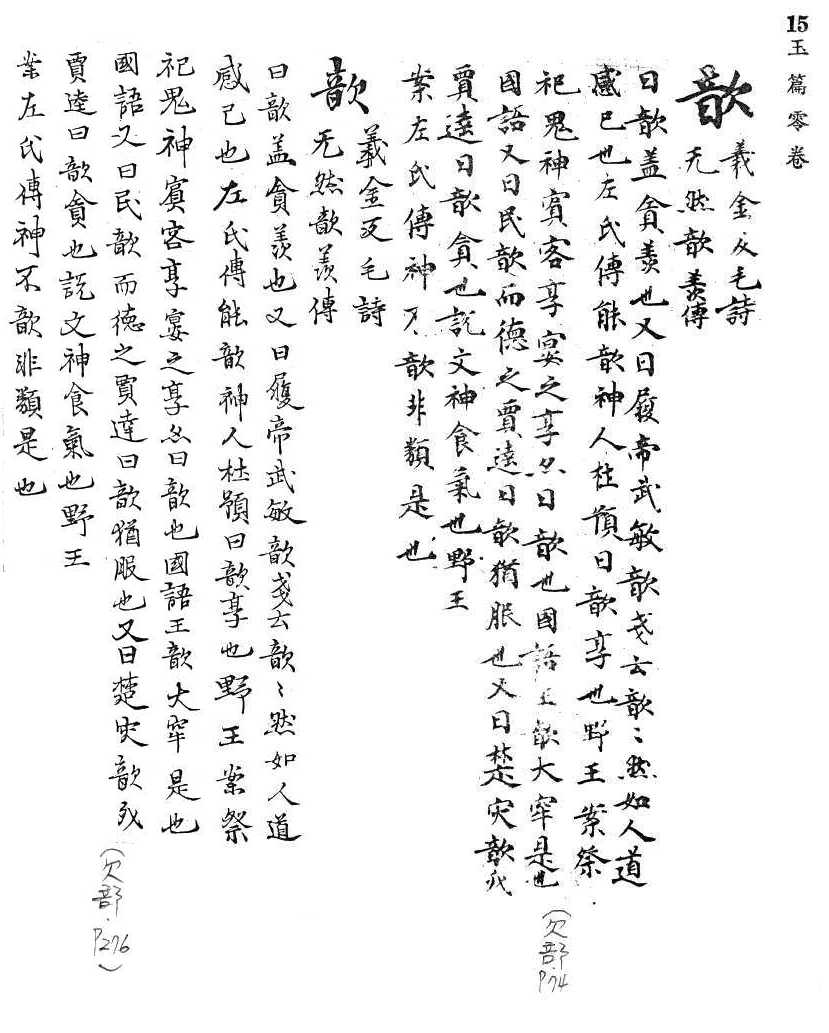 15 玉篇零卷
歆 羲金反毛詩
无然歆羨傳
曰歆盖貪羨也又曰履帝武敏歆戔云歆〻然如人道
感己也左氏傳能歆神人杜預曰歆享也野王案祭
祀鬼神賓客享宴之享亦曰歆也國語王歆大牢是也
國語又曰民歆而德之賈逵曰歆猶服也又曰楚灾歆
賈逵曰歆貪也説文神食氣也野王
案左氏傳神不歆非類是也
(欠部 P.74
歆 羲金反毛詩
无然歆羨傳
曰歆盖貪羨也又曰履帝武敏歆戔云歆〻然如人道
感己也左氏傳能歆神人杜預曰歆享也野王案祭
祀鬼神賓客享宴之享亦曰歆也國語王歆大牢是也
國語又曰民歆而德之賈逵曰歆猶服也又曰楚灾歆
賈逵曰歆貪也説文神食氣也野王
案左氏傳神不歆非類是也
(欠部·P276)